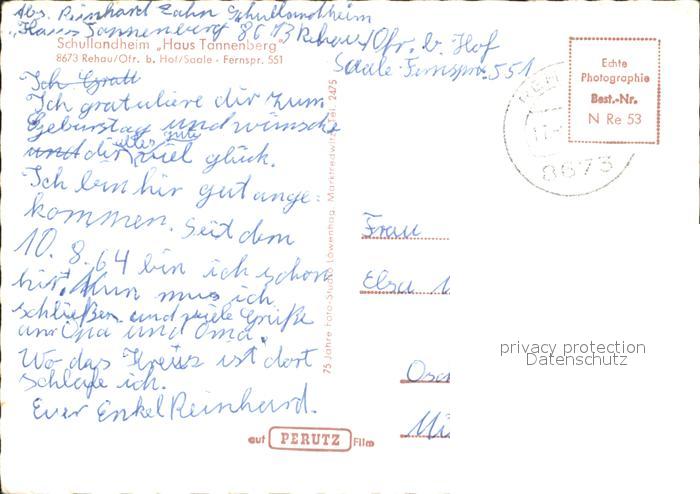 Abs. Reinhard Zahn Schullandheim
„Haus Tannenberg 8673 Rehau/Ofr. b. Hof
Saale-Fernspr. 551
Schullandheim „Haus Tannenberg“
8673 Rehau/Ofr. b. Hof/Saale · Fernspr. 551
Ich Gratt
Ich gratuliere dir zum
Geburstag und wünsche
und dir alles gute viel glück.
Ich bin hir gut ange=
kommen. Seit dem
10. 8. 64 bin ich schon
hir. Nun mus ich
schließen und viele Grüße
an Opa und Oma.
Wo das Kreuz ist dort
schlafe ich.
Euer Enkel Reinhard.
75 Jahre Foto-Studio Löwenhag, Marktredwitz, Tel. 2475
auf PERUTZ Film
Echte
Photographie
Best.-Nr.
N Re 53
8673
Frau
Elsa
privacy protection
Datenschutz